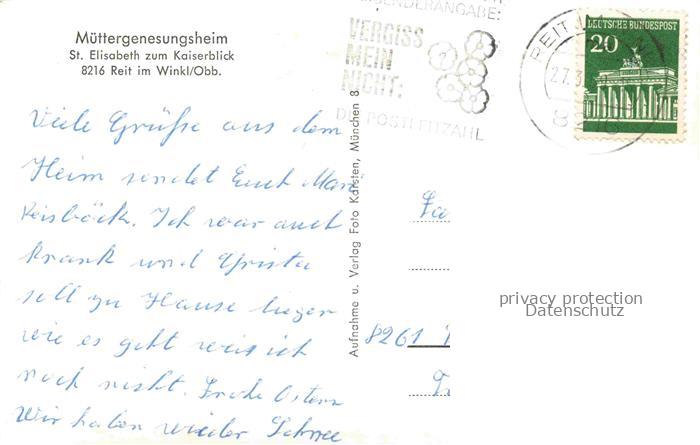 Müttergenesungsheim
St. Elisabeth zum Kaiserblick
8216 Reit im Winkl/Obb.
Viele Grüße aus dem
Heim sendet Euch
Ich war auch
krank und Christa
soll zu Hause liegen
wie es geht weis ich
noch nicht. Frohe Ostern
Wir haben wieder Schnee
Aufnahme u. Verlag Foto Karsten, München 8
ABSENDERANGABE:
VERGISS
MEIN
NICHT:
DIE POSTLEITZAHL
REIT IM WINKL
DEUTSCHE BUNDESPOST
20
8261
privacy protection
Datenschutz